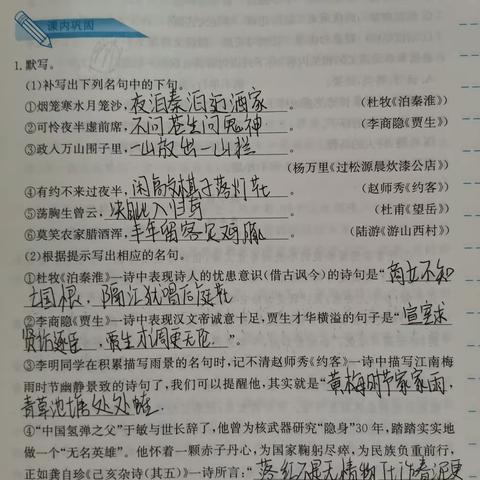 课内巩固
1.默写。
(1)补写出下列名句中的下句。
①烟笼寒水月笼沙,夜泊秦泊近酒家。 (杜牧《泊秦淮》)
②可怜夜半虚前席,不问苍生问鬼神。 (李商隐《贾生》)
③政入万山围子里,一山放出一山拦。
(杨万里《过松源晨炊漆公店》)
④有约不来过夜半,闲敲棋子落灯花。 (赵师秀《约客》)
⑤荡胸生曾云,决眦入归鸟。 (杜甫《望岳》)
⑥莫笑农家腊酒浑,丰年留客足鸡豚。 (陆游《游山西村》)
(2)根据提示写出相应的名句。
①杜牧《泊秦淮》一诗中表现诗人的忧患意识(借古讽今)的诗句是“商女不知
亡国恨,隔江犹唱后庭花
②李商隐《贾生》一诗中表现汉文帝诚意十足,贾生才华横溢的句子是“宣室求
贤访逐臣,贾生才调更无伦”。
③李明同学在积累描写雨景的名句时,记不清赵师秀《约客》一诗中描写江南梅
雨时节幽静景致的诗句了,我们可以提醒他,其实就是“黄梅时节家家雨,
青草池塘处处蛙。
④“中国氢弹之父”于敏与世长辞了,他曾为核武器研究“隐身”30年,踏踏实实地
做一个“无名英雄”。他怀着一颗赤子丹心,为国家鞠躬尽瘁,为民族负重前行,
正如龚自珍《己亥杂诗(其五)》一诗所言:“落红不是无情物,化作春泥更